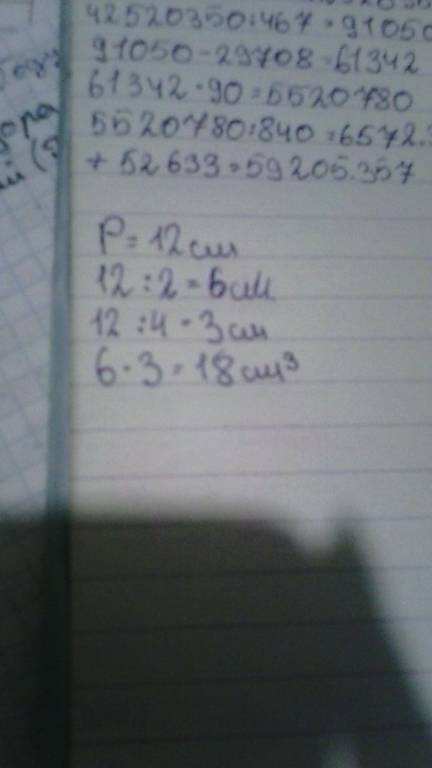 42520350:467=91050
91050-29708=61342
61342·90=5520780
5520780:840=6572.
+52633=59205.357
P=12см
12:2=6см
12:4=3см
6·3=18см³